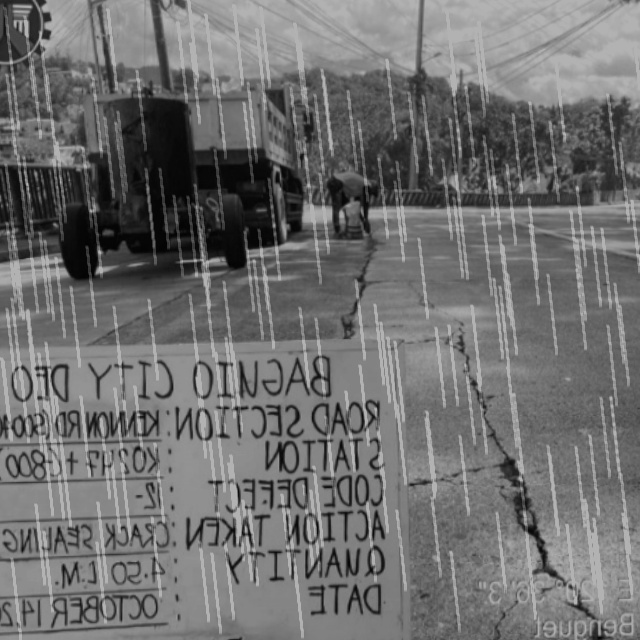 BAGUIO CITY DEO
ROAD SECTION: KENNON RD
STATION : K0247+(-800
CODE DEFECT : 12-
ACTION TAKEN : CRACK SEALING
QUANTITY : 4.50 L.M.
DATE : OCTOBER 19, 2
Benguet